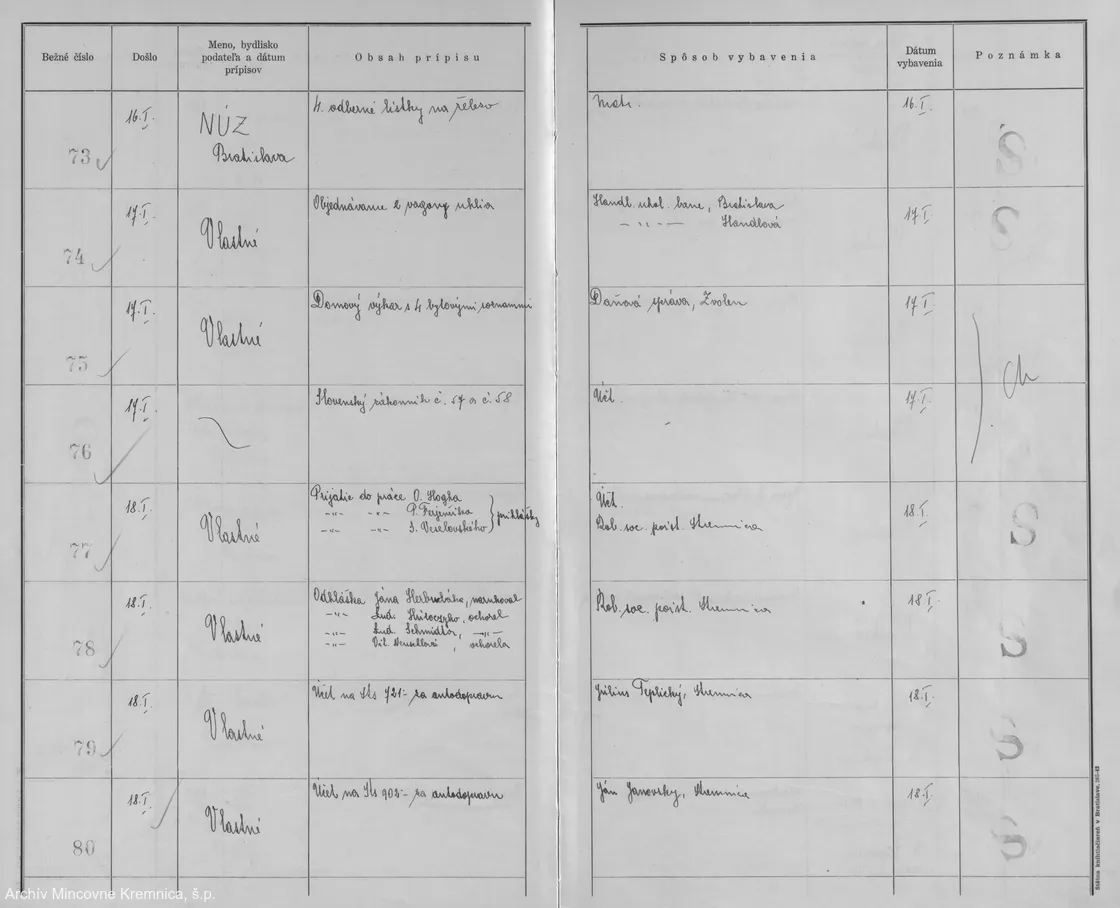 Bežné číslo
Došlo
Meno, bydlisko
podateľa a dátum
prípisov
Obsah prípisu
Spôsob vybavenia
Dátum
vybavenia
Poznámka
73
16.I.
NÚZ
Bratislava
4. odberné lístky na železo
16.I.
S
74
17.I.
Vlastné
Objednávanie 2 vagony uhlia
Handl. uhol. bane, Bratislava
— „ — Handlová
17.I.
S
75
17.I.
Vlastné
Domový výkaz s 4 bytovými zoznammi
Daňová správa, Zvolen
17.I.
76
17.I.
Slovenský zákonník č. 57 a č. 58
Účt.
17.I.
77
18.I.
Vlastné
Prijatie do práce O.
-„- -„- P.
-„- -„- Veselovského
prihlášky
Účt.
Rob. soc. poist. Kremnica
18.I.
S
78
18.I.
Vlastné
Odhláška Jána narukoval
-„- Ľud. ochorel
-„- Ľud. Schmidtör, —„—
-„- ochorela
Rob. soc. poist. Kremnica
18.I.
S
79
18.I.
Vlastné
Účet na Ks 721- za autodopravu
Július Teplický, Kremnica
18.I.
S
80
18.I.
Vlastné
Účet na Ks 903- za autodopravu
Ján Janovský, Kremnica
18.I.
S
Štátna kníhtlačiareň v Bratislave,
Archív Mincovne Kremnica, š.p.